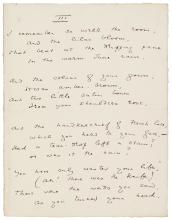 III
I remember so well the room,
And the lilac bloom
That beat at the dripping pane
In the warm June rain.
And the colour of your gown,
It was amber-brown,
And two little satin bows
From your shoulders rose.
And the handkerchief of French lace,
Which you held to your face—
Had a tear-drop left a stain?
Or was it the rain?
"You have only wasted your life"—
(Ah! there was the knife!)
Those were the words you said,
As you turned your head.